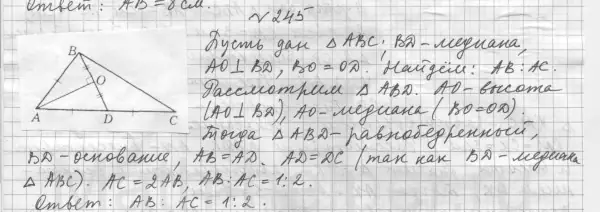 Ответ: АВ = 8 см.
№ 245
B
O
A
D
C
Пусть дан △ АВС; BD – медиана,
AO ⊥ BD, BO = OD. Найдём: АВ : АС.
Рассмотрим △ ABD. АО – высота
(AO ⊥ BD), АО – медиана (BO = OD).
Тогда △ ABD – равнобедренный,
BD – основание, AB = AD. AD = DC (так как BD – медиана
△ АВС). АС = 2АВ, АВ : АС = 1 : 2.
Ответ: АВ : АС = 1 : 2.